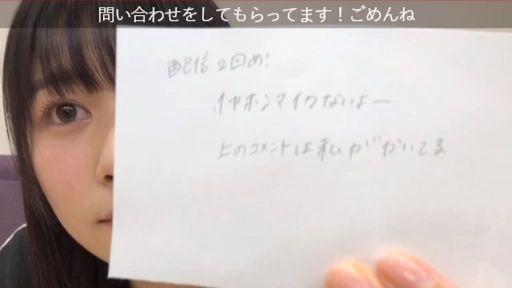 問い合わせをしてもらってます！ごめんね
配信2回め！
イヤホンマイクないよー
上のコメントは私がかいてま